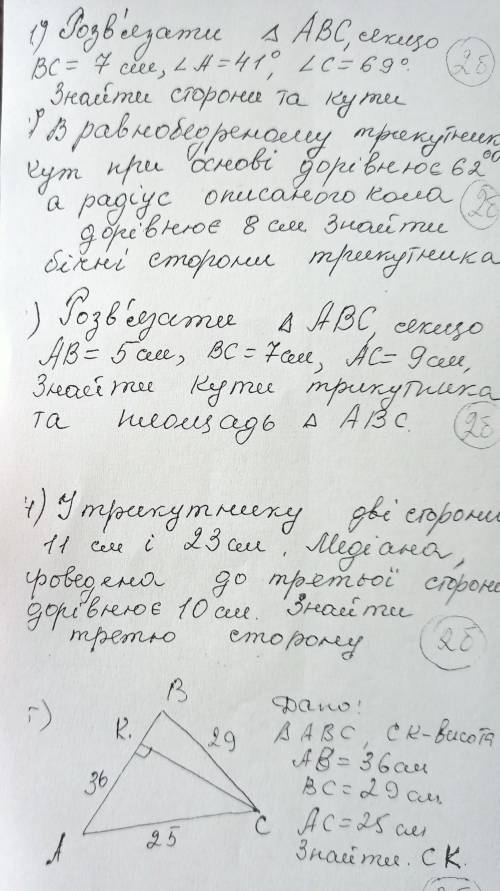 1) Розв'язати Δ ABC, якщо
BC = 7 см, ∠A = 41°, ∠C = 69°. 2б
Знайти сторони та кути
) В равнобедреному трикутник
кут при основі дорівнює 62°
а радіус описаного кола 2б
дорівнює 8 см Знайти
бічні сторони трикутника
) Розв'язати Δ ABC, якщо
AB = 5 см, BC = 7 см, AC = 9 см,
Знайти кути трикутника
та площадь Δ ABC. 2б
4) У трикутнику дві сторони
11 см і 23 см. Медіана,
проведена до третьої сторони
дорівнює 10 см. Знайти
третю сторону 2б
B
Дано:
K.
29
Δ ABC, CK - висота
AB = 36 см
36
BC = 29 см
C
AC = 25 см
A
25
Знайти. CK.